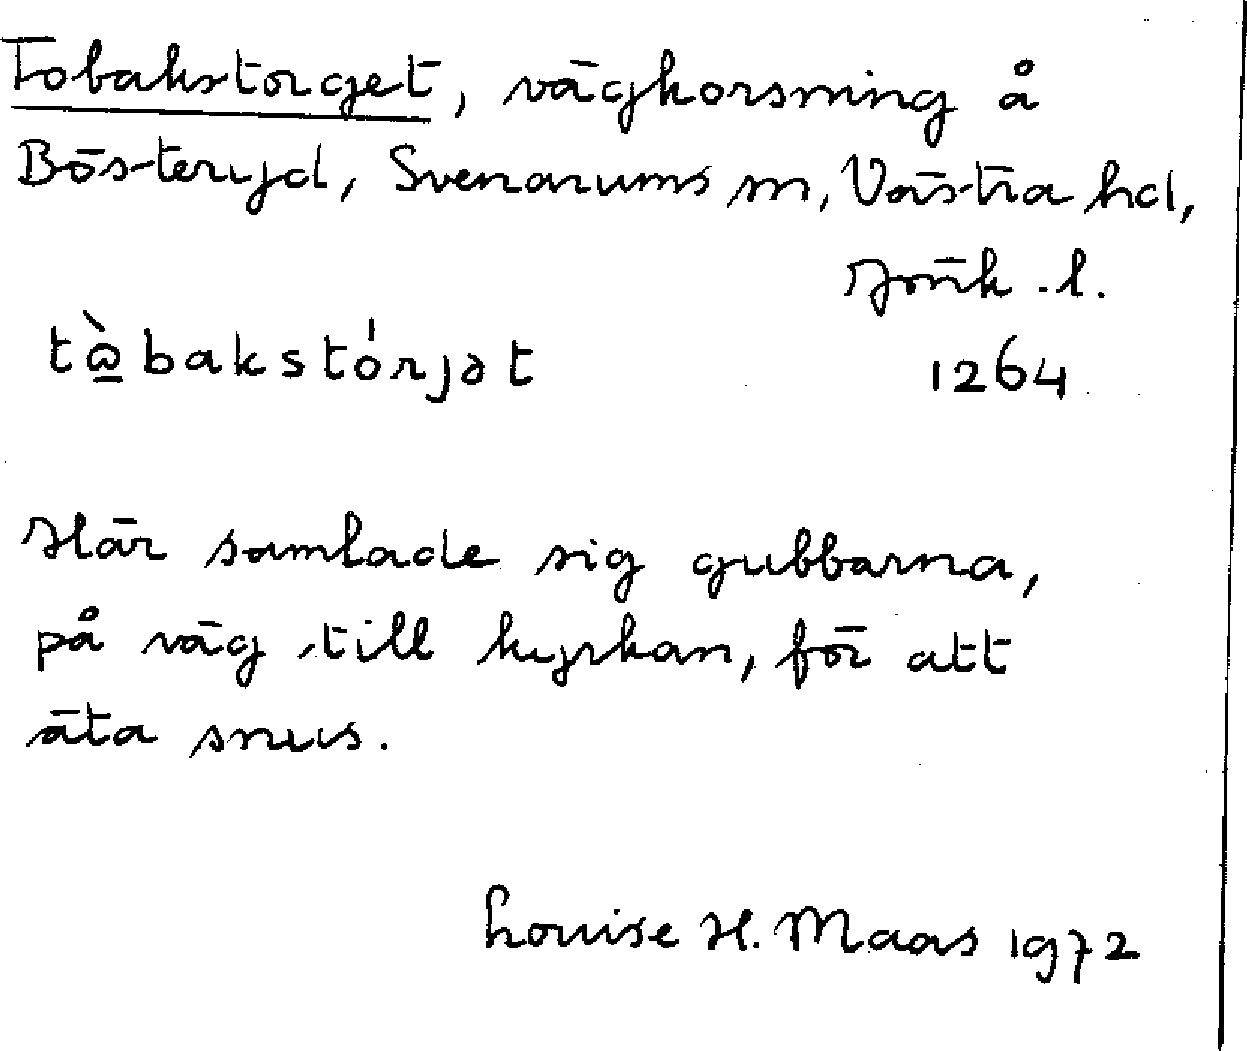 Tobakstorget, vägkorsning å
Bösteryd, Svenarums sn, Västra hd,
Jönk. l.
tò̱bakstórjət
1264
Här samlade sig gubbarna,
på väg till kyrkan, för att
äta snus.
Louise H. Maas 1972